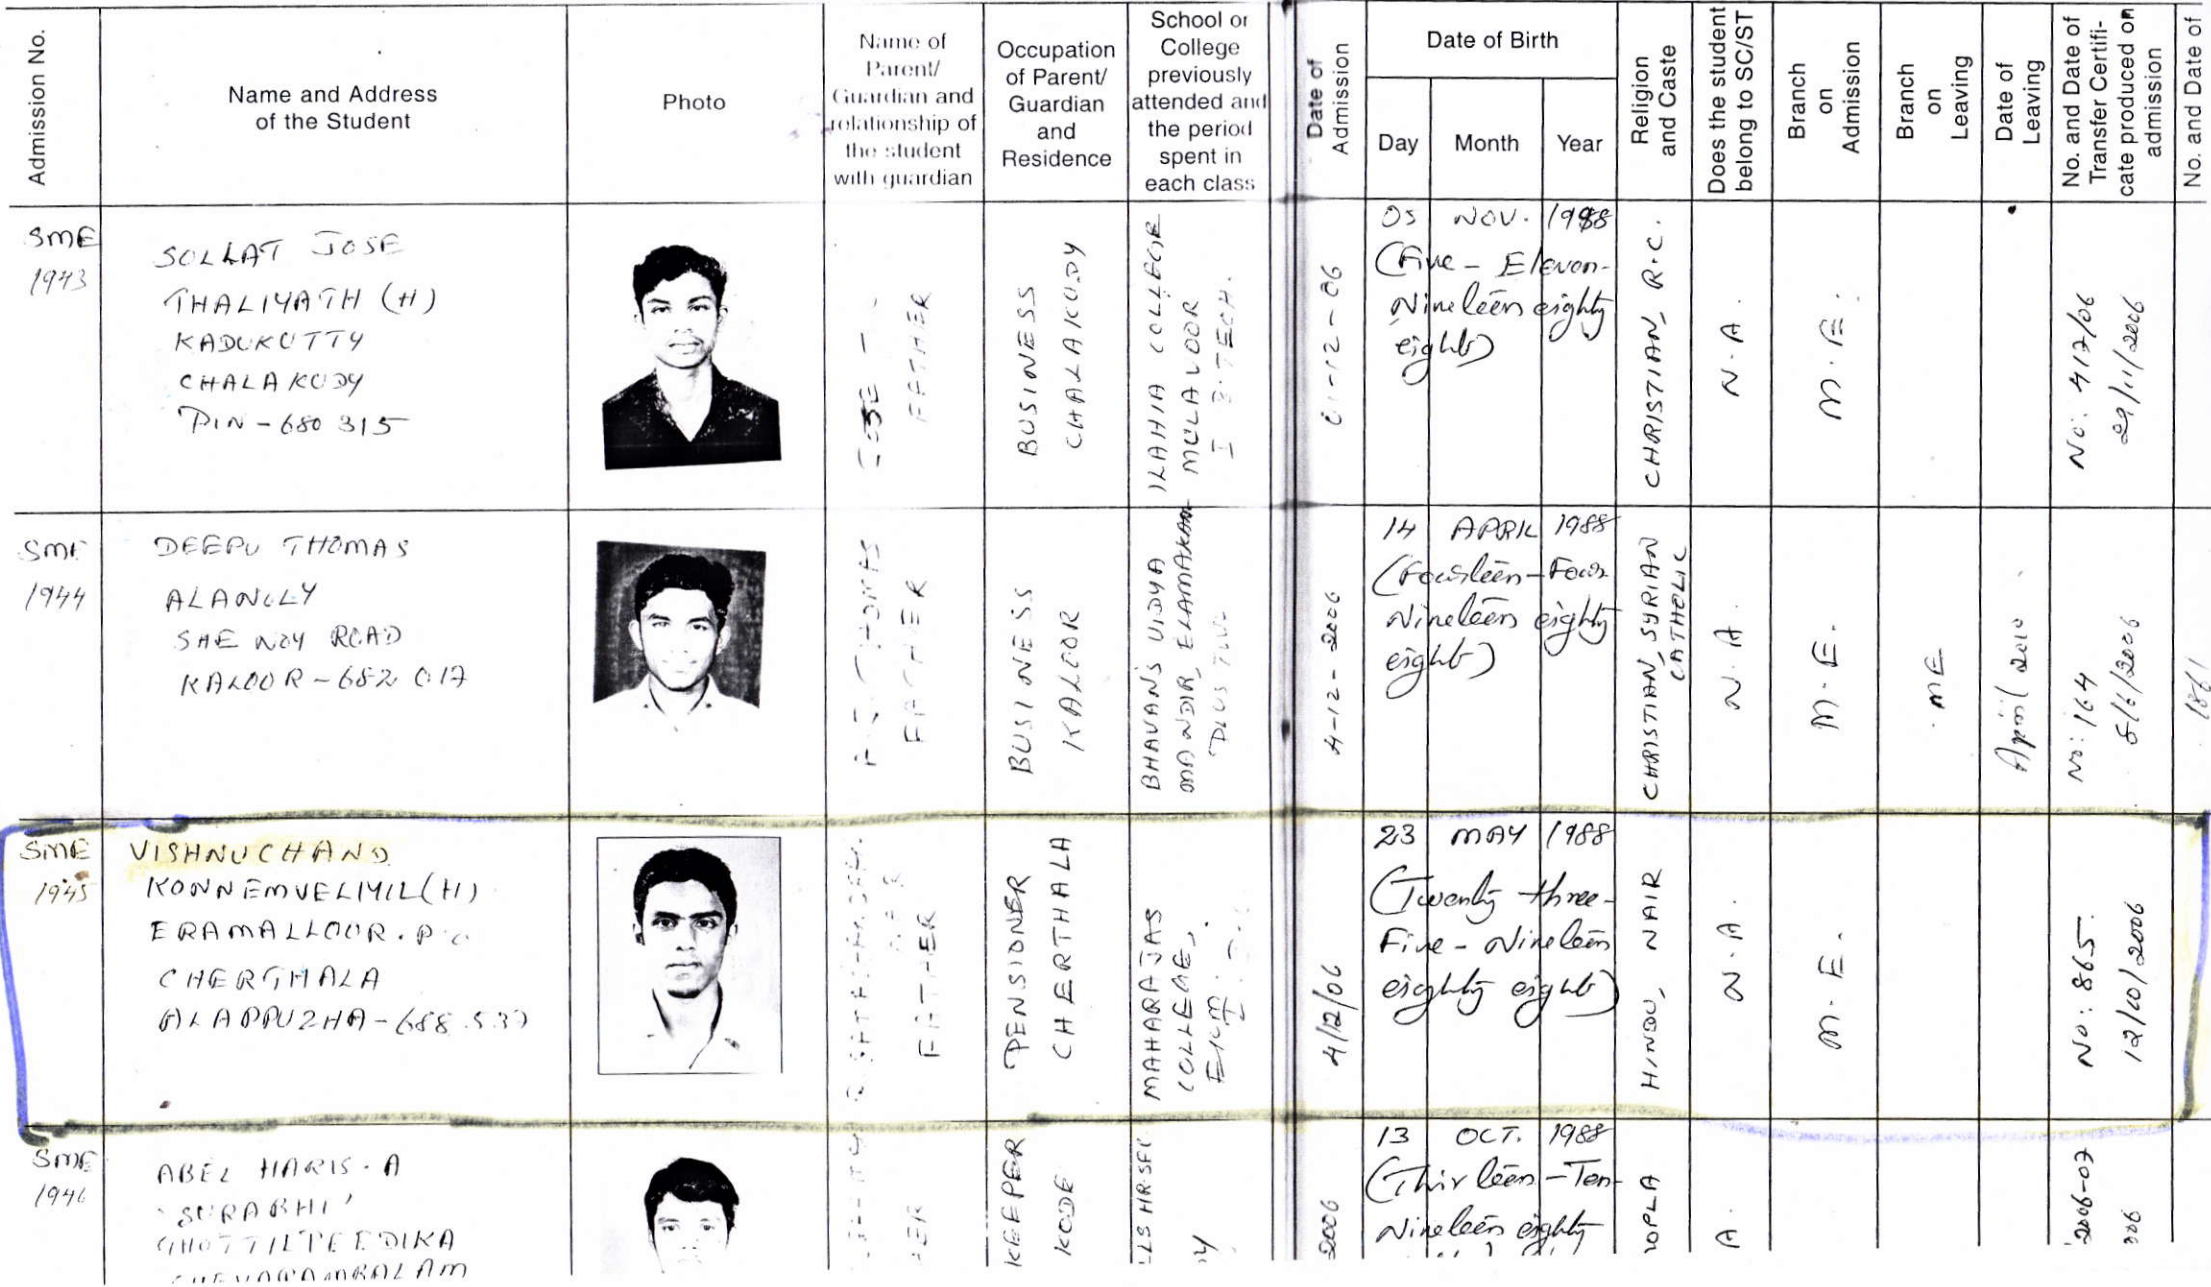 Admission No.
Name and Address
of the Student
Photo
Name of
Parent/
Guardian and
relationship of
the student
with guardian
Occupation
of Parent/
Guardian
and
Residence
School or
College
previously
attended and
the period
spent in
each class
Date of
Admission
Date of Birth
Day
Month
Year
Religion
and Caste
Does the student
belong to SC/ST
Branch
on
Admission
Branch
on
Leaving
Date of
Leaving
No. and Date of
Transfer Certifi-
cate produced on
admission
No. and Date of
SME
1943
SOLLAT JOSE
THALIYATH (H)
KADUKUTTY
CHALAKUDY
PIN - 680 315
FATHER
BUSINESS
CHALAKUDY
ILAHIA COLLEGE
MULAVOOR
I B.TECH.
01-12-06
05 NOV. 1988
(Five - Eleven-
Nineteen eighty
eight)
CHRISTIAN, R.C.
N.A.
M.E.
No: 417/06
29/11/2006
SME
1944
DEEPU THOMAS
SHENOY ROAD
KALOOR - 682 017
FATHER
BUSINESS
KALOOR
BHAVAN'S VIDYA
MANDIR, ELAMAKARA
PLUS TWO
4-12-2006
14 APRIL 1988
(Fourteen - Four
Nineteen eighty
eight)
CHRISTIAN, SYRIAN
CATHOLIC
N.A.
M.E.
ME
April 2010
No: 164
5/6/2006
1861
SME
1945
VISHNUCHAND
KONNEMVELIYIL(H)
ERAMALLOOR.P.O
CHERTHALA
ALAPPUZHA - 688 537
FATHER
PENSIONER
CHERTHALA
MAHARAJAS
COLLEGE,
4/12/06
23 MAY 1988
(Twenty three-
Five - Nineteen
eighty eight)
HINDU, NAIR
N.A.
M.E.
No: 865.
12/10/2006
SME
1946
ABEL HARIS.A
'SURABHI'
KEEPER
KODE
2006
13 OCT. 1988
(Thirteen - Ten-
Nineteen eighty
OPLA
A.
2006-07